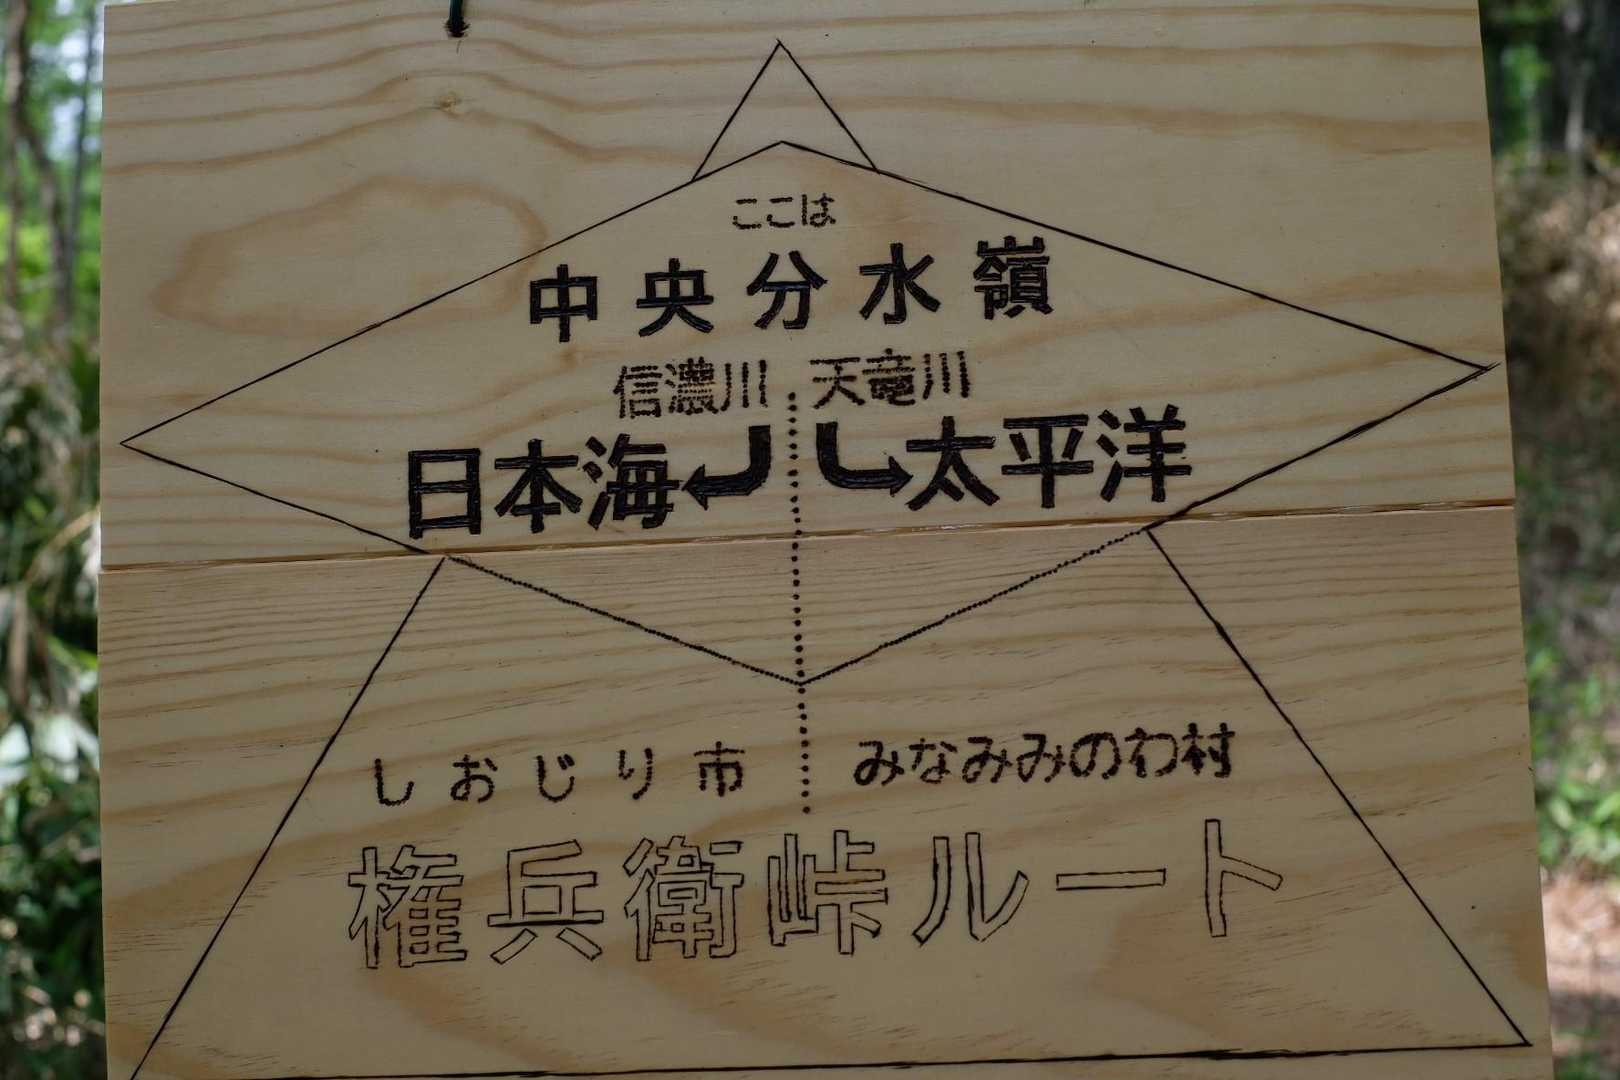 ここは
中央分水嶺
信濃川 天竜川
日本海 太平洋
しおじり市 みなみみのわ村
権兵衛峠ルート